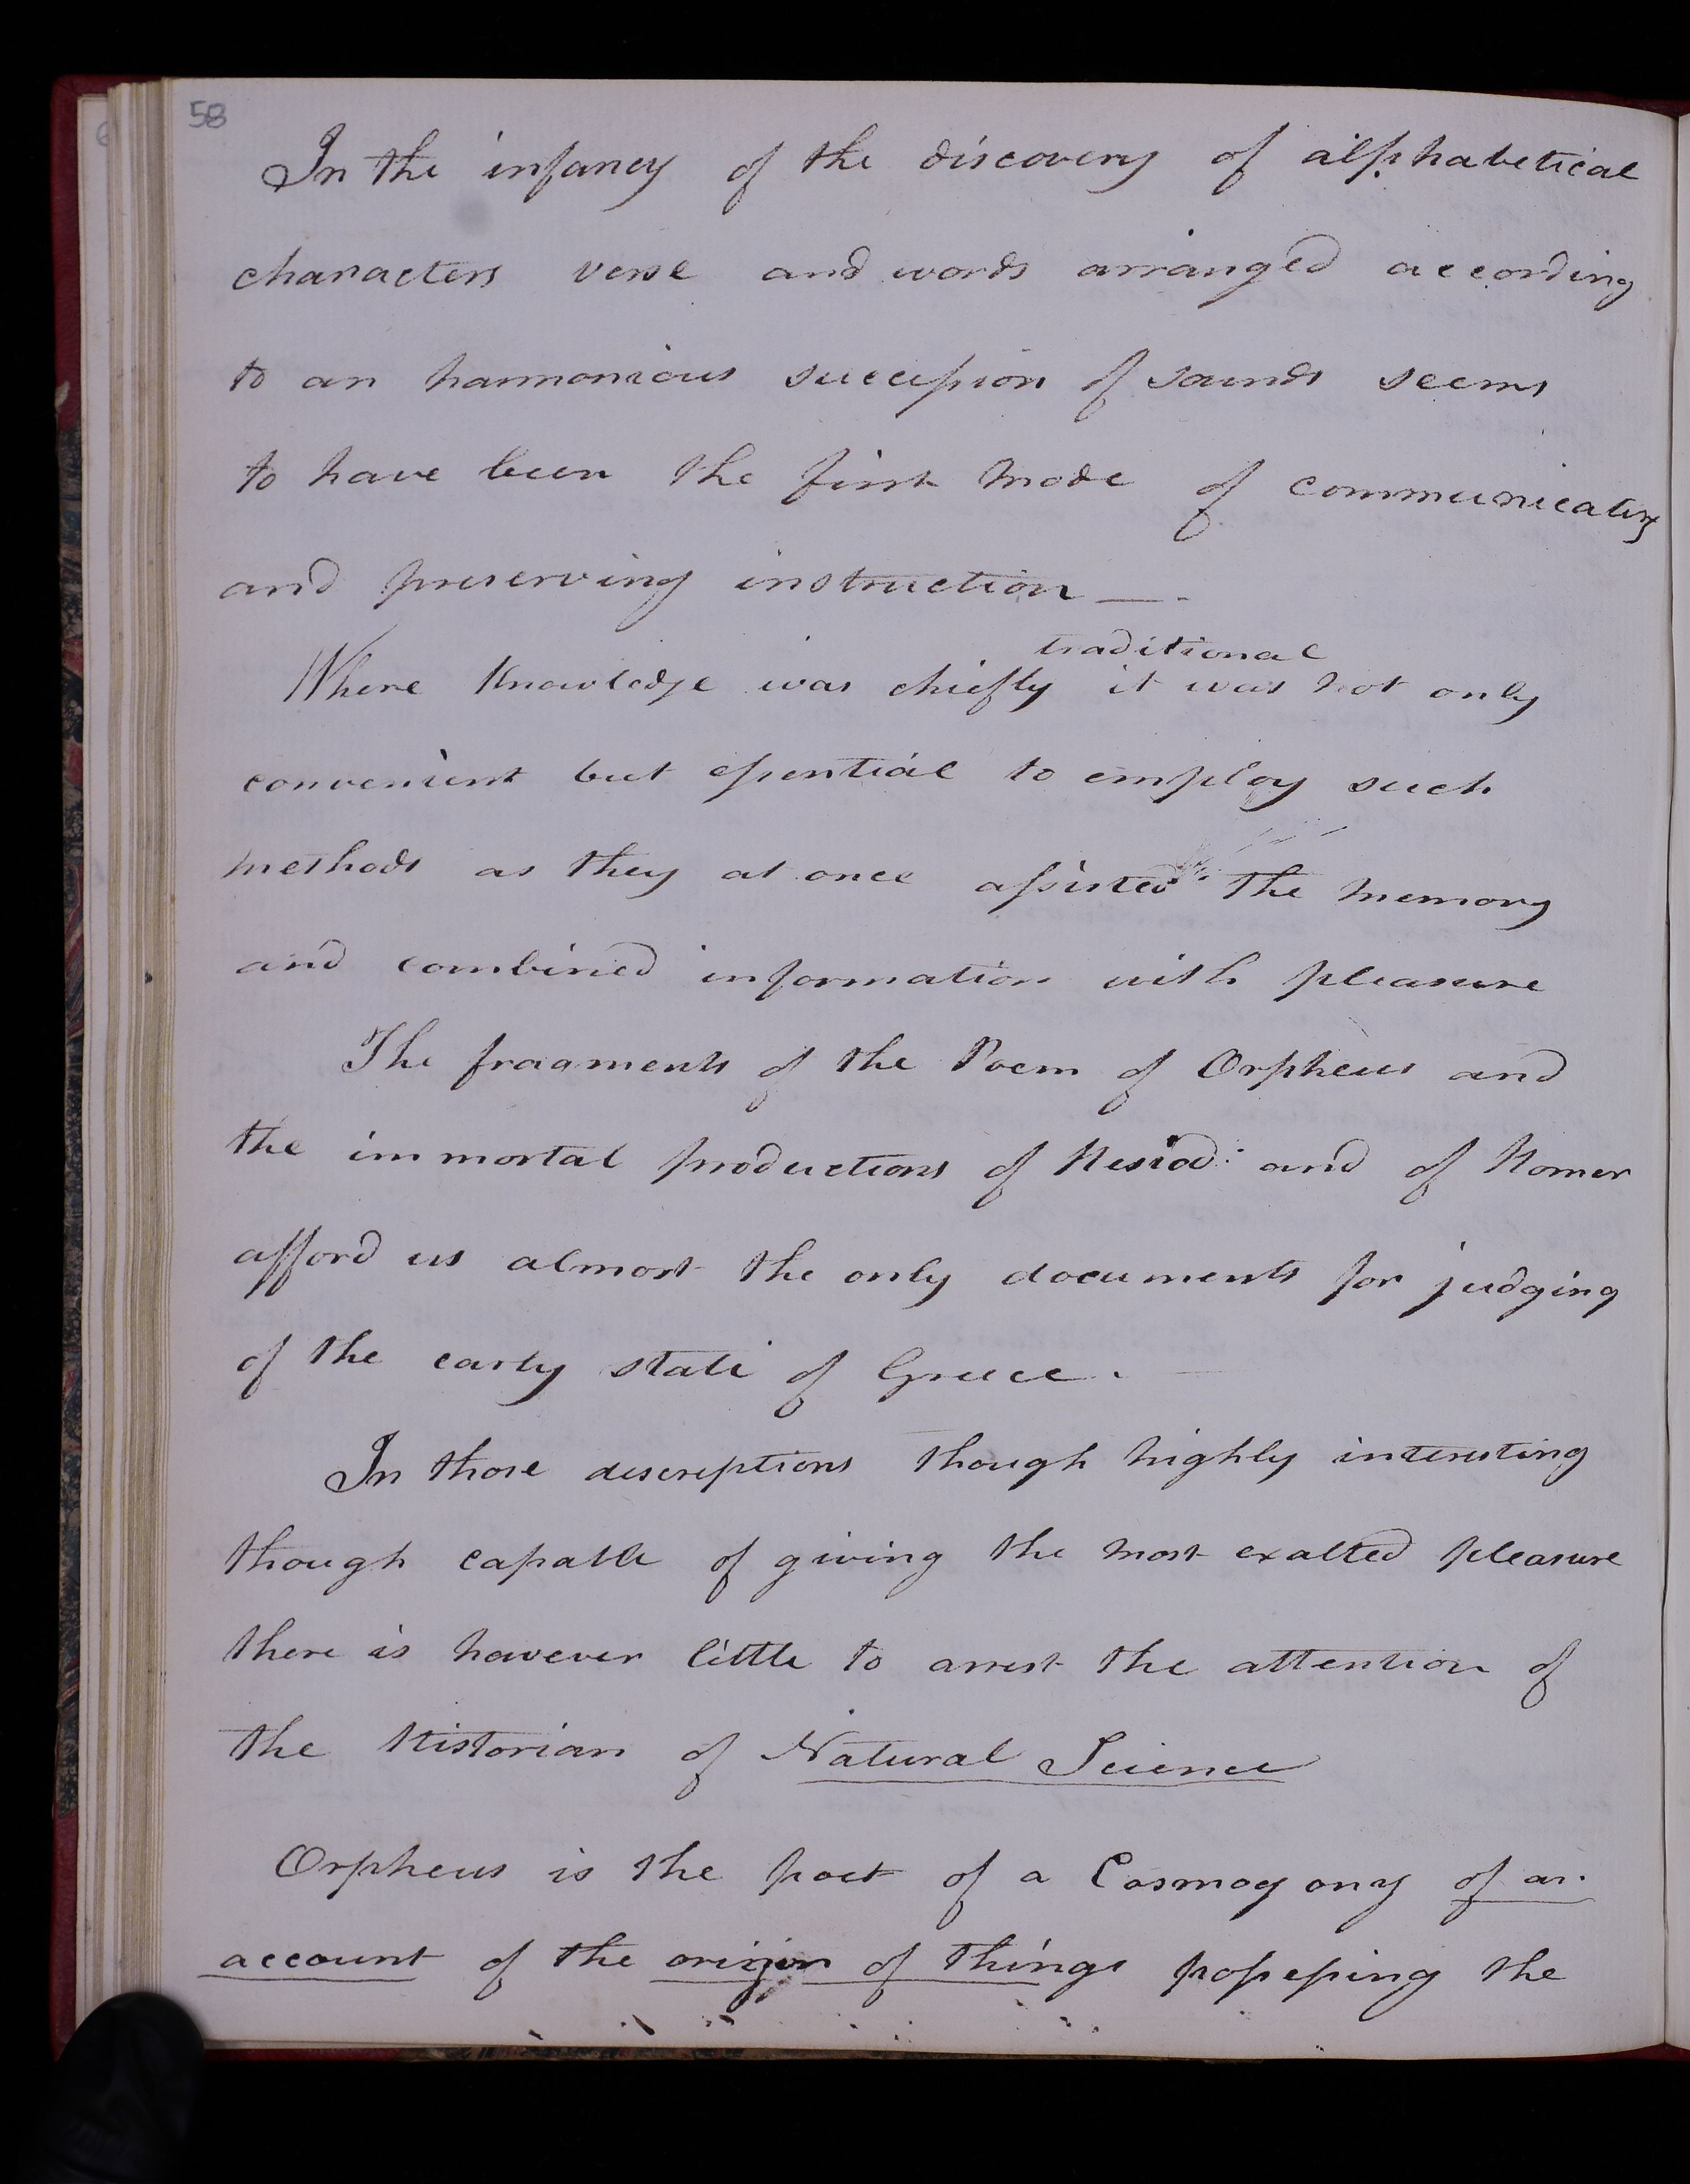 58
In the infancy of the discovery of alphabetical
characters verse and words arranged according
to an harmonious succession of sounds seems
to have been the first mode of communicating
and preserving instruction —
traditional
Where Knowledge was chiefly it was not only
convenient but essential to employ such
methods as they at once assisted the memory
and combined information with pleasure
The fragments of the Poem of Orpheus and
the immortal productions of Hesiod: and of Homer
afford us almost the only documents for judging
of the early state of Greece.
In those descriptions though highly interesting
though capable of giving the most exalted pleasure
there is however little to arrest the attention of
the Historian of Natural Science
Orpheus is the poet of a Cosmogony of an
account of the origin of things possessing the